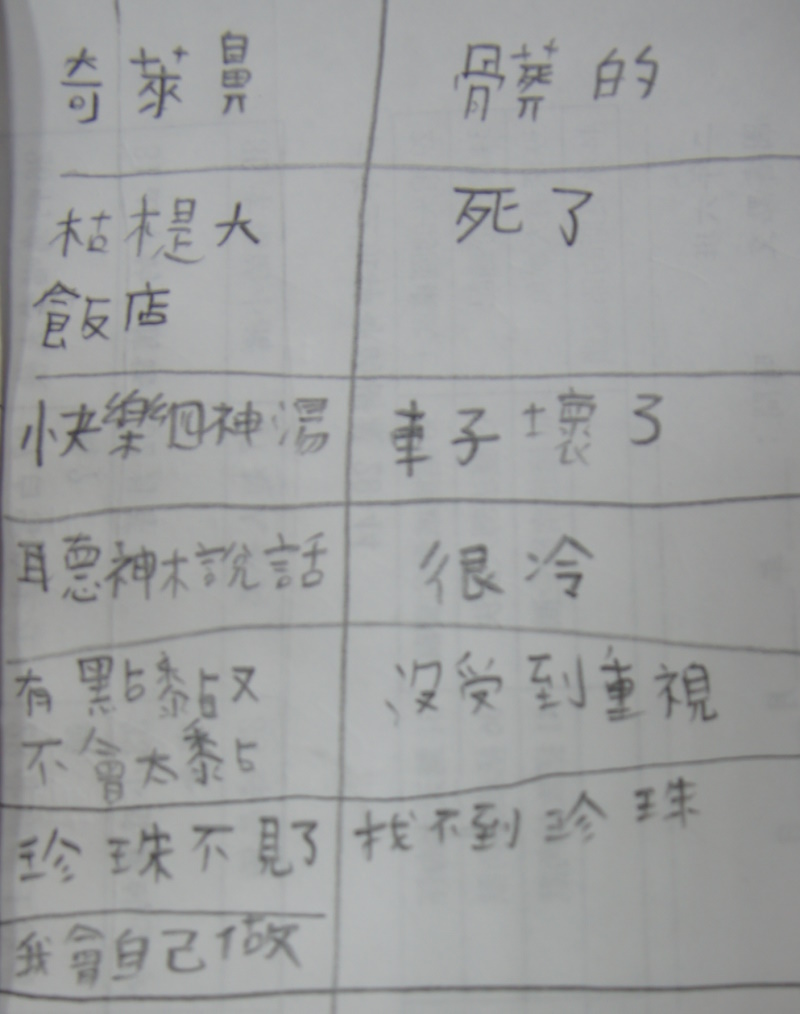 奇萊鼻 髒的
大 死了
飯店
快樂神湯 車子壞了
聽神木說話 很冷
有點黏又 沒受到重視
不會太黏
珍珠不見了 找不到珍珠
我會自己做